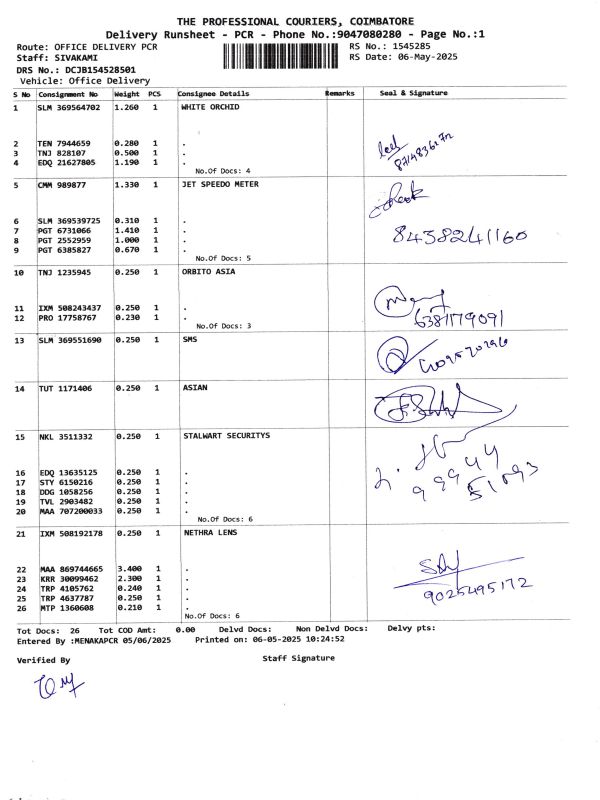 THE PROFESSIONAL COURIERS, COIMBATORE
Delivery Runsheet - PCR - Phone No.:9047080280 - Page No.:1
Route: OFFICE DELIVERY PCR RS No.: 1545285
Staff: SIVAKAMI RS Date: 06-May-2025
DRS No.: DCJB154528501
Vehicle: Office Delivery
S No Consignment No Weight PCS Consignee Details Remarks Seal & Signature
1 SLM 369564702 1.260 1 WHITE ORCHID
2 TEN 7944659 0.280 1 .
3 TNJ 828107 0.500 1 .
4 EDQ 21627805 1.190 1 .
No.Of Docs: 4
5 CMM 989877 1.330 1 JET SPEEDO METER
6 SLM 369539725 0.310 1 .
7 PGT 6731066 1.410 1 .
8 PGT 2552959 1.000 1 .
9 PGT 6385827 0.670 1 .
8438241160
No.Of Docs: 5
10 TNJ 1235945 0.250 1 ORBITO ASIA
11 IXM 508243437 0.250 1 .
12 PRO 17758767 0.230 1 .
6381179091
No.Of Docs: 3
13 SLM 369551690 0.250 1 SMS
14 TUT 1171406 0.250 1 ASIAN
15 NKL 3511332 0.250 1 STALWART SECURITYS
16 EDQ 13635125 0.250 1 .
17 STY 6150216 0.250 1 .
18 DDG 1058256 0.250 1 .
19 TVL 2903482 0.250 1 .
20 MAA 707200033 0.250 1 .
99944
51093
No.Of Docs: 6
21 IXM 508192178 0.250 1 NETHRA LENS
22 MAA 869744665 3.400 1 .
23 KRR 30099462 2.300 1 .
24 TRP 4105762 0.240 1 .
25 TRP 4637787 0.250 1 .
26 MTP 1360608 0.210 1 .
9025495172
No.Of Docs: 6
Tot Docs: 26 Tot COD Amt: 0.00 Delvd Docs: Non Delvd Docs: Delvy pts:
Entered By :MENAKAPCR 05/06/2025 Printed on: 06-05-2025 10:24:52
Verified By Staff Signature